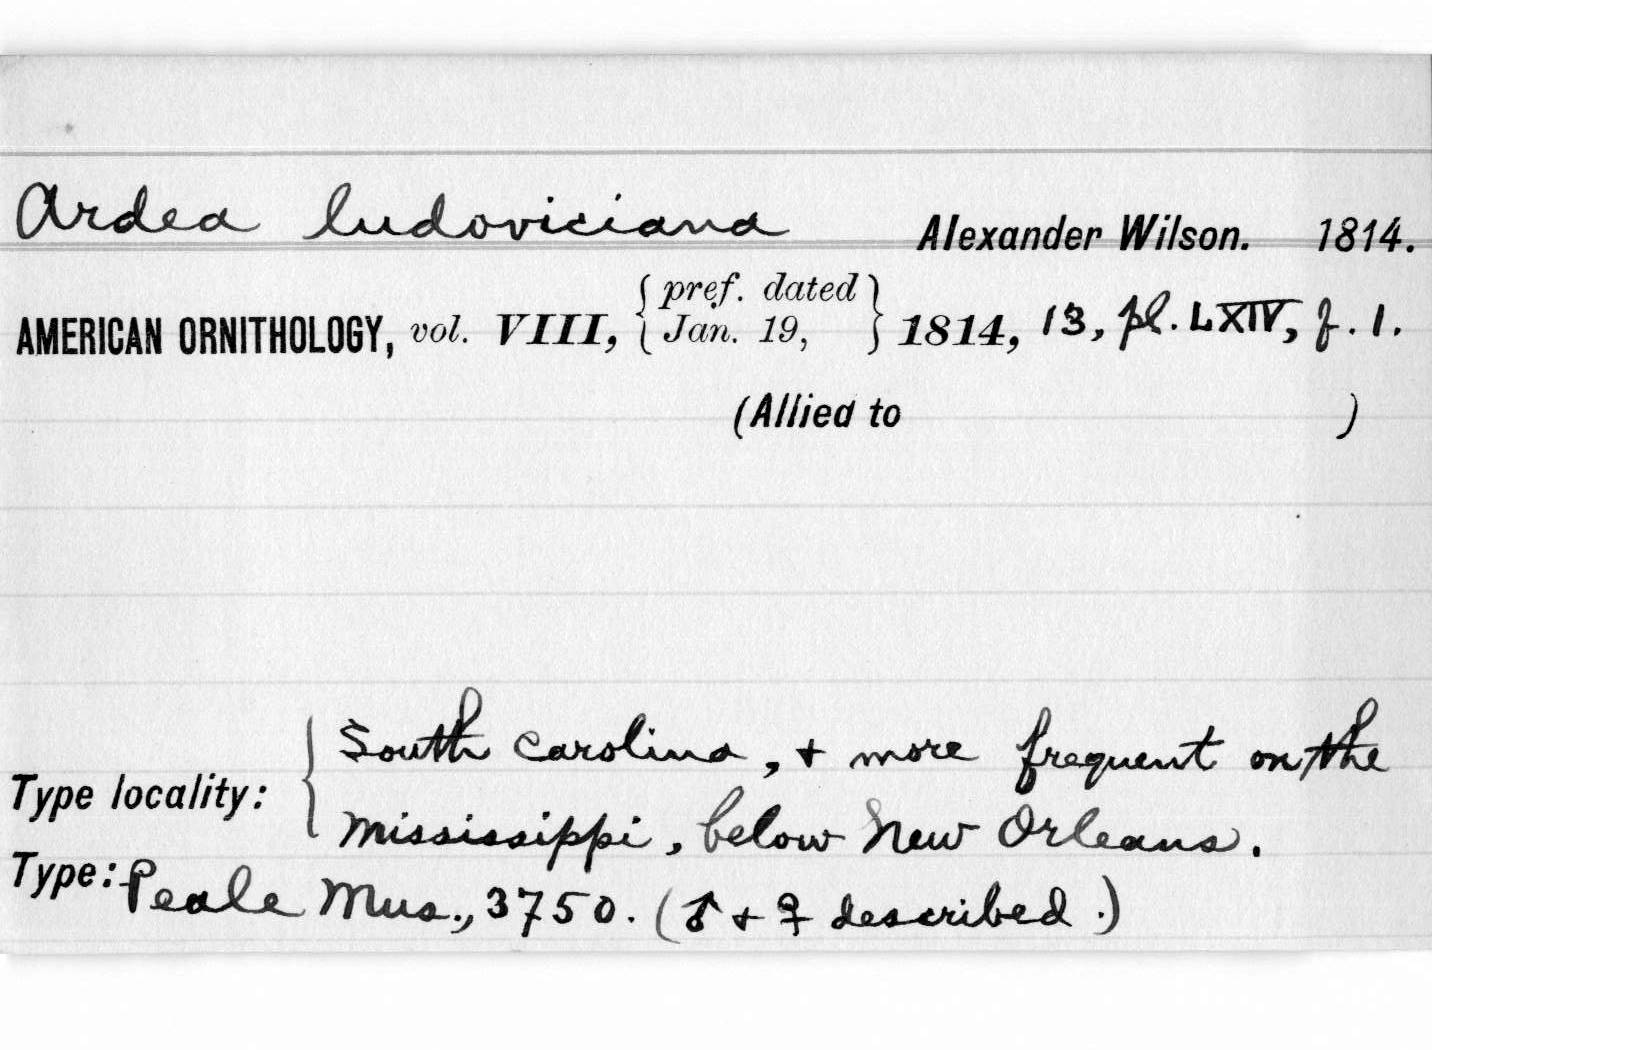 Ardea ludoviciana Alexander Wilson. 1814.
AMERICAN ORNITHOLOGY, vol. VIII, { pref. dated Jan. 19, } 1814, 13, pl. LXIV, f. 1.
(Allied to )
Type locality: { South Carolina, + more frequent on the
Mississippi, below New Orleans.
Type: Peale Mus., 3750. (♂ + ♀ described.)